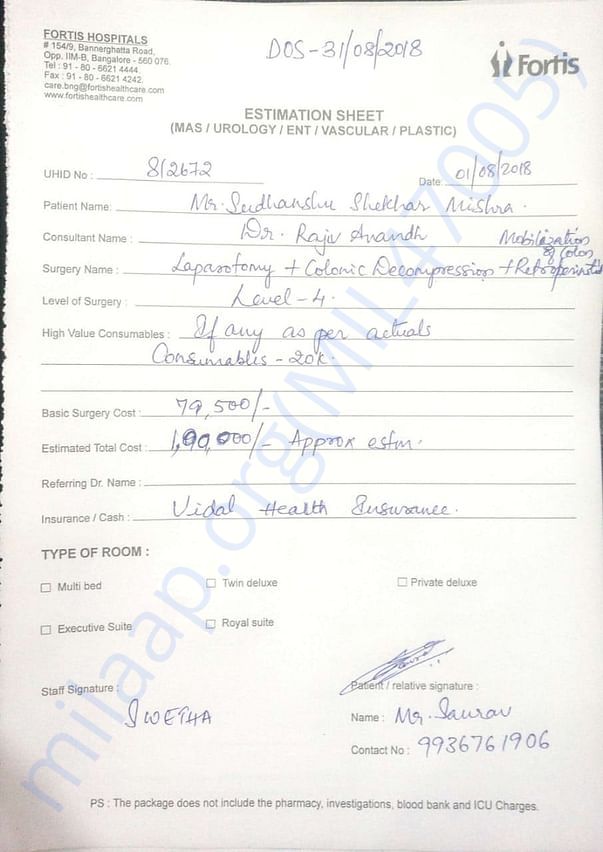 FORTIS HOSPITALS
# 154/9, Bannerghatta Road,
Opp. IIM-B, Bangalore - 560 076.
Tel : 91 - 80 - 6621 4444
Fax : 91 - 80 - 6621 4242.
care.bng@fortishealthcare.com
www.fortishealthcare.com
DOS - 31/08/2018
Fortis
ESTIMATION SHEET
(MAS / UROLOGY / ENT / VASCULAR / PLASTIC)
UHID No : 812672
Date 01/08/2018
Patient Name: Mr. Sudhanshu Shekhar Mishra.
Consultant Name : Dr. Rajiv Anandh
Mobilization of Colon
Surgery Name : Laparotomy + Colonic Decompression +
Level of Surgery : Level - 4.
High Value Consumables : If any as per actuals
Consumables - 20k.
Basic Surgery Cost : 79,500/-
Estimated Total Cost : 1,90,000/- Approx estm.
Referring Dr. Name :
Insurance / Cash : Vidal Health Insurance.
TYPE OF ROOM :
Multi bed
Twin deluxe
Private deluxe
Executive Suite
Royal suite
Staff Signature :
SWETHA
Patient / relative signature :
Name : Mr. Saurav
Contact No : 9936761906
PS : The package does not include the pharmacy, investigations, blood bank and ICU Charges.
milaap.org(MIL47005)